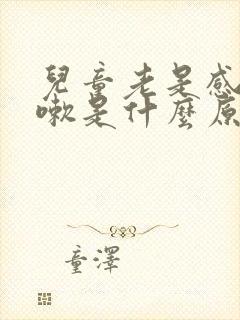 兒童老是感
嗽是什麼原
童澤